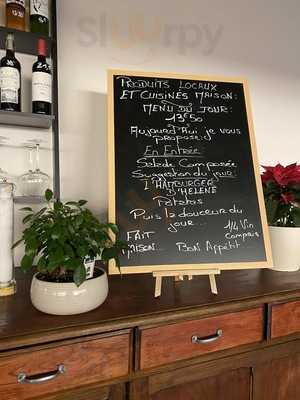 Produits Locaux
et Cuisinés Maison:
Menu du jour
13€50
Aujourd'hui je vous
propose:
En Entrée
Salade Composée
Suggestion du jour:
L'Hamburger
D'Helene
Patatas
Puis la douceur du
jour...
1/4 Vin
Compris
FAIT
MAISON...
Bon Appétit
Sluurpy